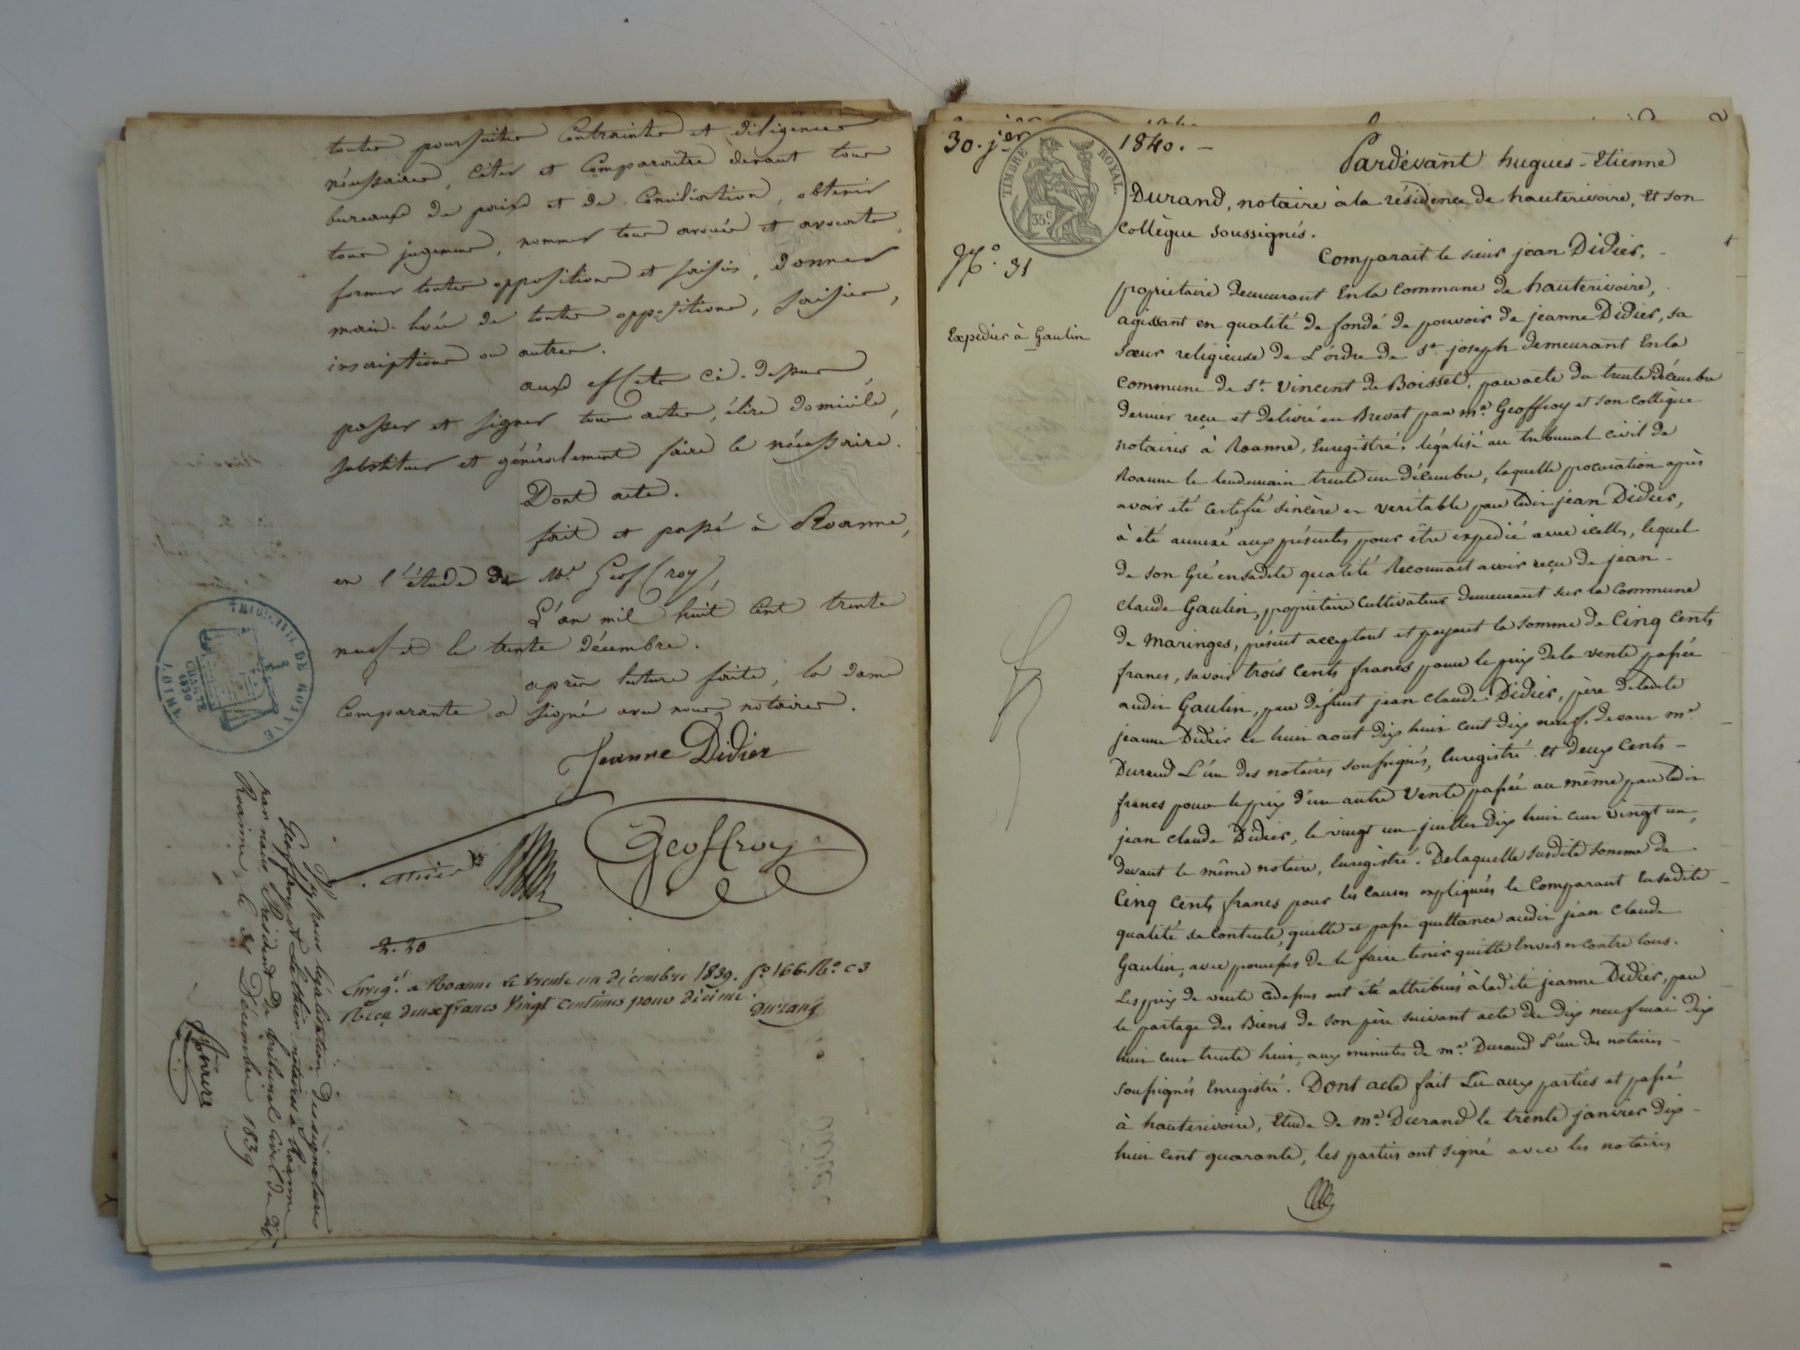 toutes poursuites contraintes et diligences
nécessaires, citer et comparaitre devant tous
bureaux de paix et de conciliation, obtenir
tous jugemens, nommer tous avoués et avocats,
former toutes oppositions et saisies, donner
main-levée de toutes oppositions, saisies,
inscriptions ou autres.
aux effets ci-dessus,
passer et signer tous actes, élire domicile,
substituer et généralement faire le nécessaire.
Dont acte.
fait et passé à Roanne,
en l'étude de Me. Geoffroy,
L'an mil huit cent trente
neuf et le trente décembre.
après lecture faite, la dame
Comparante a signé avec nous notaires.
Jeanne Didier
Geoffroy
2.20
Enregt. à Roanne le trente un décembre 1839. fo. 166. Ro. c 3
Reçu deux francs vingt centimes pour décime.
Durand
Vu pour légalisation des signatures
Geoffroy et notaires à Roanne
par nous Président du tribunal civil de
Roanne, le 31 Décembre 1839
TRIB. CIVIL DE ROANNE
LOIRE
30. jer 1840. -
TIMBRE ROYAL.
35c
Pardevant hugues-Etienne
Durand, notaire à la résidence de hauterivoire, Et son
Collègue soussignés.
No. 31
Comparait le sieur jean Didier,
propriétaire demeurant En la Commune de hauterivoire,
Expédier à Gaulin
agissant en qualité de fondé de pouvoir de jeanne Didier, sa
sœur religieuse de L'ordre de St. joseph demeurant En la
Commune de St. Vincent de Boisset, par acte du trente décembre
dernier reçu et délivré en Brevet par me. Geoffroy et son collègue
notaires à Roanne, Enregistré, légalisé au tribunal civil de
Roanne le lendemain trente un décembre, laquelle procuration après
avoir été certifié sincère et veritable par ledit jean Didier,
à été annexé aux présentes pour être expedié avec icelles, lequel
de son Gré en sadite qualité Reconnait avoir reçu de jean-
claude Gaulin, propriétaire Cultivateur demeurant sur la Commune
de Maringes, présent acceptant et payant la somme de Cinq Cents
francs, savoir trois cents francs pour le prix de la vente passée
audit Gaulin, par défunt jean claude Didier, père deladite
jeanne Didier le huit aout dix huit cent dix neuf, devant me.
Durand L'un des notaires soussignés, Enregistré. et deux Cents -
francs pour le prix d'un autre Vente passée au même par ledit
jean Claude Didier, le vingt un juillet dix huit cent vingt un,
devant le même notaire, Enregistré. De laquelle susdite somme de
Cinq Cents francs pour les causes expliquées le Comparant en sadite
qualité se contente, quitte et passe quittance audit jean claude
Gaulin, avec promesse de le faire tenir quitte Envers et contre tous.
Les prix de vente cidessus ont été attribués à ladite jeanne Didier, par
le partage des Biens de son père suivant acte du dix neuf mai dix
huit cent trente huit, aux minutes de me. Durand L'un des notaires -
soussignés Enregistré. Dont acte fait Lu aux parties et passé
à hauterivoire, Etude de me. Durand le trente janvier dix-
huit cent quarante, les parties ont signé avec les notaires